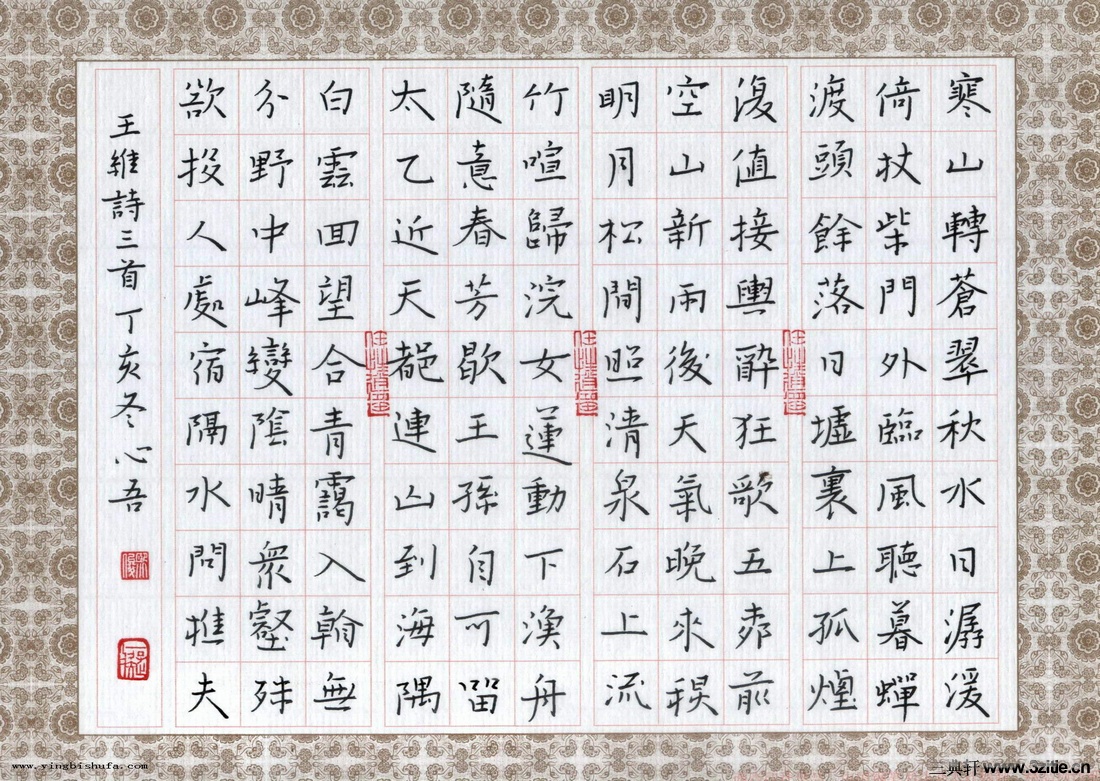 寒山轉蒼翠秋水日潺湲
倚杖柴門外臨風聽暮蟬
渡頭餘落日墟裏上孤煙
復值接輿醉狂歌五柳前
空山新雨後天氣晚來秋
明月松間照清泉石上流
竹喧歸浣女蓮動下漁舟
隨意春芳歇王孫自可留
太乙近天都連山到海隅
白雲回望合青靄入翰無
分野中峰變陰晴眾壑殊
欲投人處宿隔水問樵夫
王維詩三首丁亥冬心吾
www.yingbishufa.com